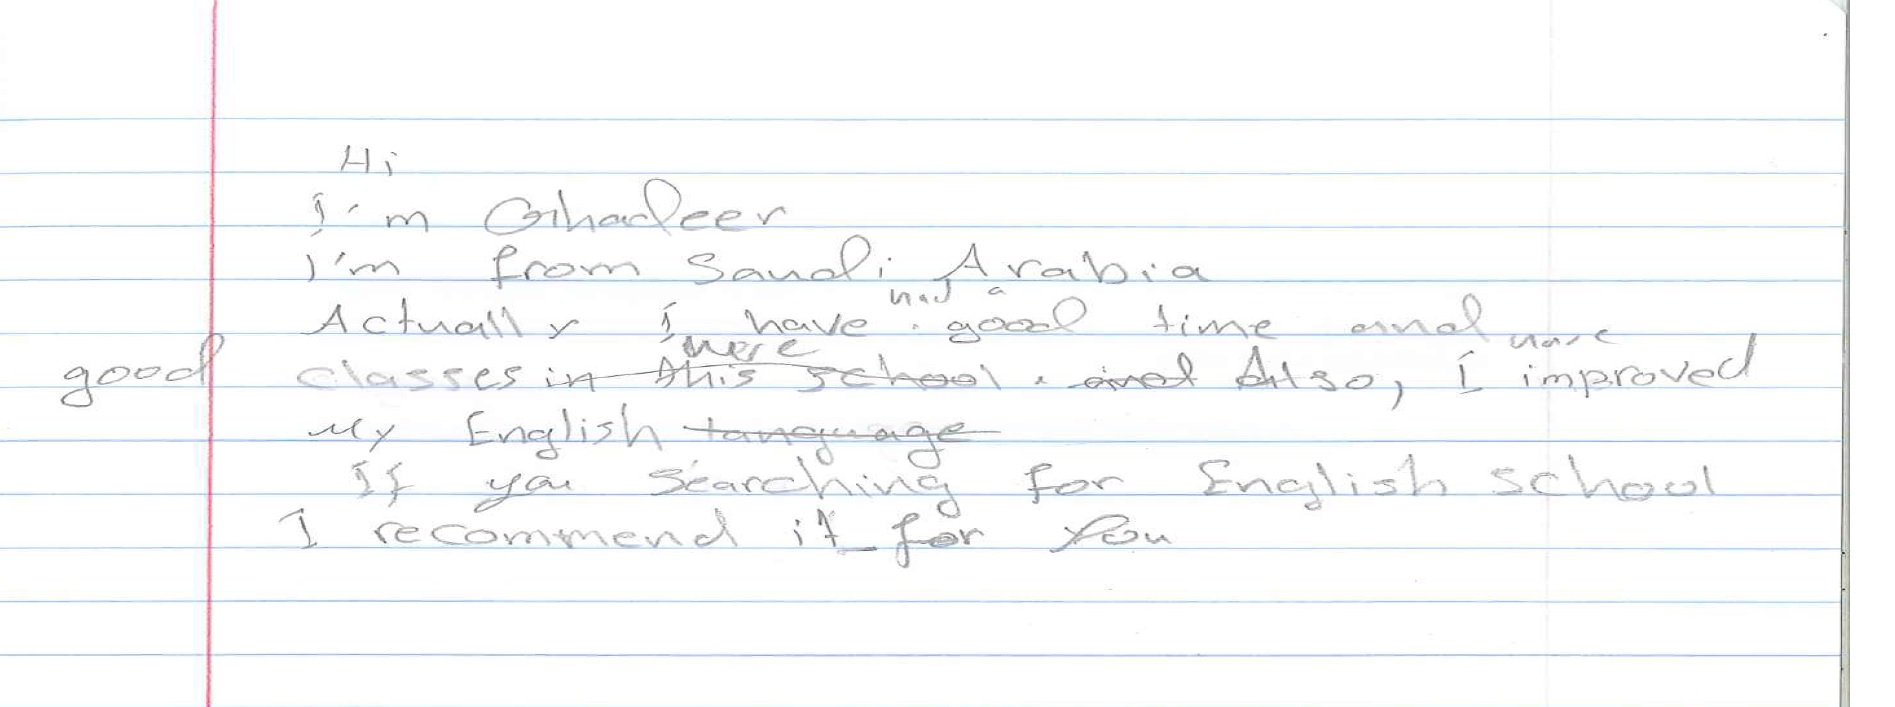 Hi
I'm Ghadeer
I'm from Saudi Arabia
had a
Actually I have good time and
here have
good classes in this school. and Also, I improved
My English language
If you searching for English school
I recommend it for you